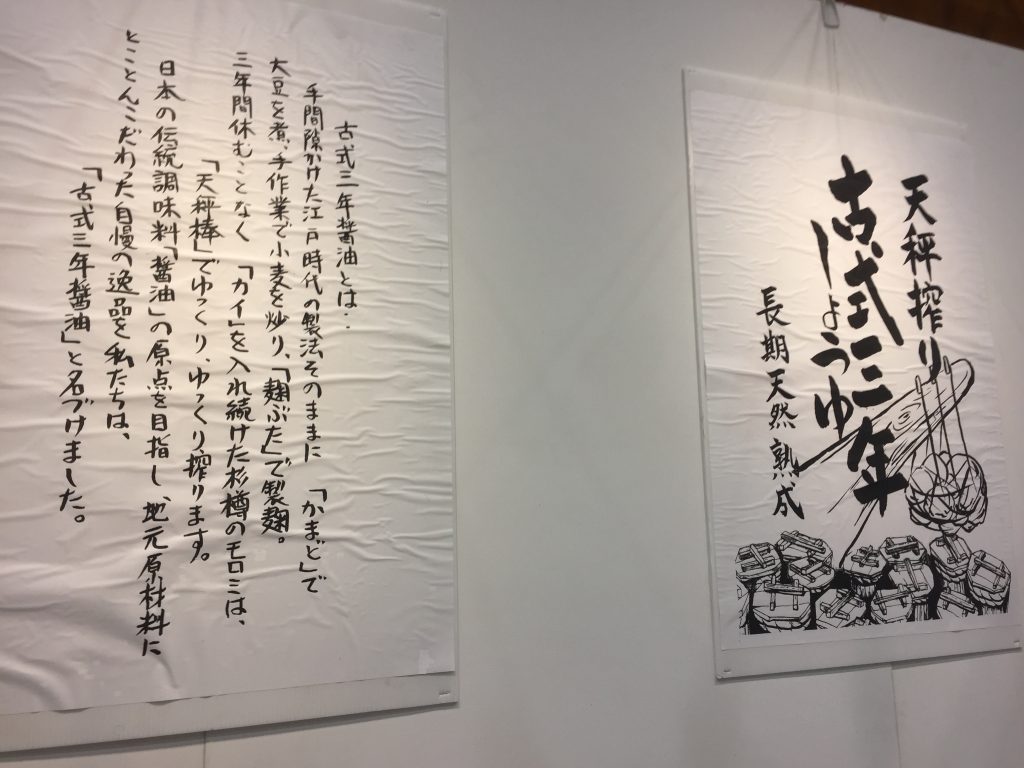 天秤搾り
古式三年
しょうゆ
長期天然熟成
古式三年醤油とは‥
手間隙かけた江戸時代の製法そのままに「かまど」で
大豆を煮、手作業で小麦を炒り、「麹ぶた」で製麹。
三年間休むことなく「カイ」を入れ続けた杉樽のモロミは、
「天秤棒」でゆっくり、ゆっくり搾ります。
日本の伝統調味料「醤油」の原点を目指し、地元原材料に
とことんこだわった自慢の逸品を私たちは、
「古式三年醤油」と名づけました。